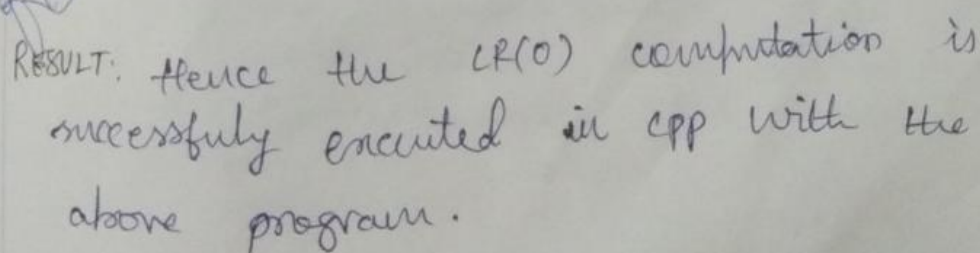 RESULT: Hence the LR(0) computation is
successfuly executed in cpp with the
above program.